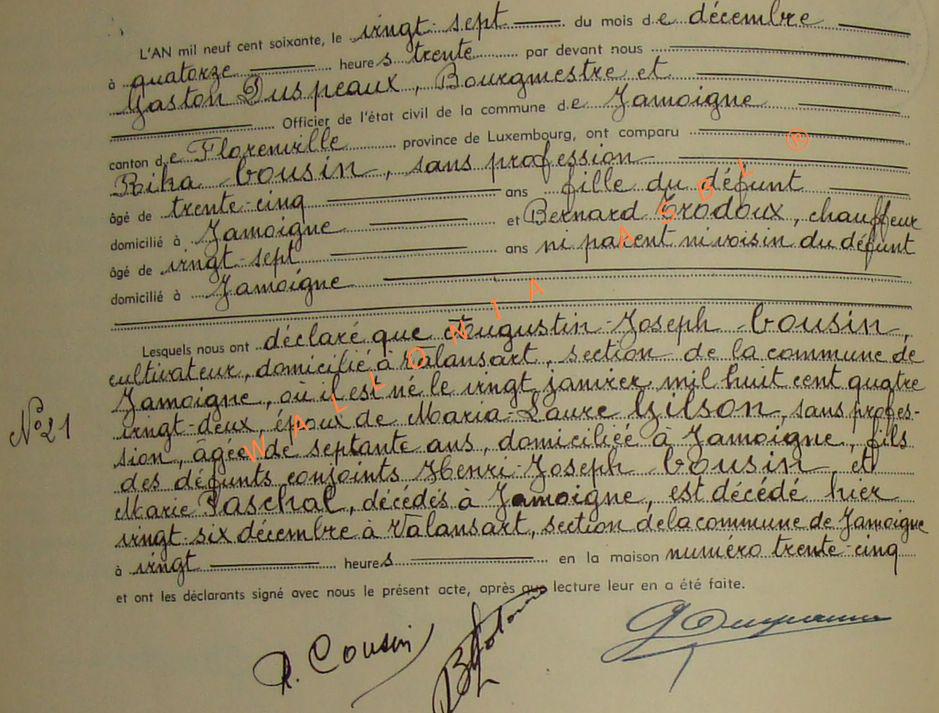 L'AN mil neuf cent soixante, le vingt-sept du mois de décembre
à quatorze heures trente par devant nous
Gaston Duspeaux, Bourgmestre et
Officier de l'état civil de la commune de Jamoigne
canton de Florenville province de Luxembourg, ont comparu
Rika Cousin, sans profession
âgé de trente-cinq ans fille du défunt
domicilié à Jamoigne et Bernard Trodoux, chauffeur
âgé de vingt-sept ans ni parent ni voisin du défunt
domicilié à Jamoigne
Lesquels nous ont déclaré que Augustin-Joseph Cousin,
cultivateur, domicilié à Valansart, section de la commune de
Jamoigne, où il est né le vingt janvier mil huit cent quatre
N° 21
vingt-deux, époux de Maria-Laure Gilson, sans profes-
sion, âgée de septante ans, domiciliée à Jamoigne, fils
des défunts conjoints Henri-Joseph Cousin et
Marie Paschal, décédés à Jamoigne, est décédé hier
vingt-six décembre à Valansart, section de la commune de Jamoigne
à vingt heures en la maison numéro trente-cinq
et ont les déclarants signé avec nous le présent acte, après que lecture leur en a été faite.
R. Cousin
WALLONIA ASBL ®